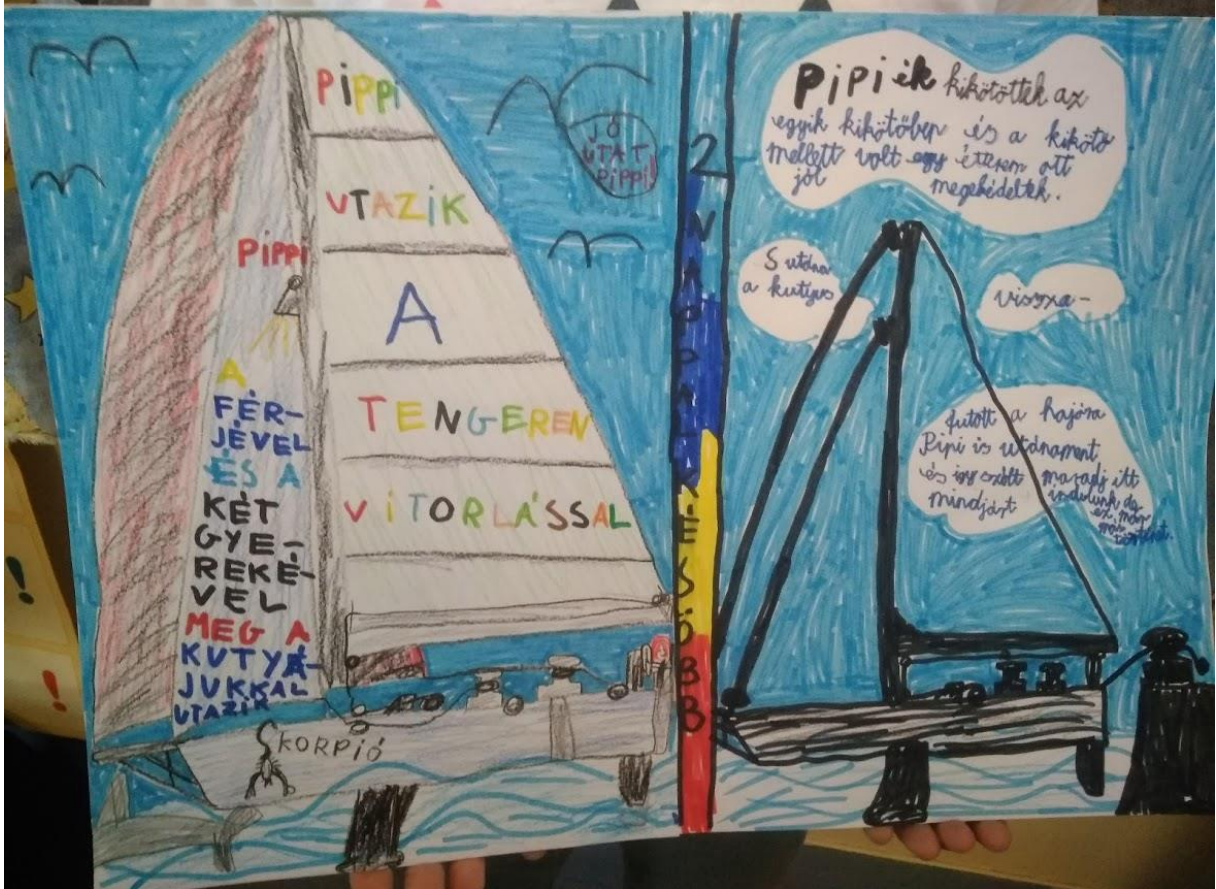 PIPPI
UTAZIK
A
TENGEREN
VITORLÁSSAL
PIPPI
A
FÉR-
JÉVEL
ÉS A
KÉT
GYE-
REKÉ-
VEL
MEG A
KUTYÁ-
JUKKAL
UTAZIK
SKORPIÓ
JÓ
ÚTAT
PIPPI!
2 NAPPAL KÉSŐBB
Pipiék kikötöttek az
egyik kikötőben és a kikötő
mellett volt egy étterem ott
jól megebédeltek.
S utána
a kutyus
vissza-
futott a hajóra
Pipi is utánament
és így szólt maradj itt
mindjárt indulunk de
ez már
más
történet.